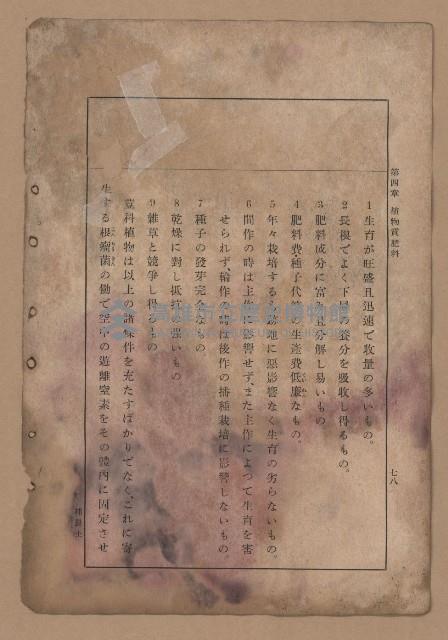 第四章 植物質肥料
七八
1 生育が旺盛且迅速で收量の多いもの。
2 長根でよく下層の養分を吸收し得るもの。
3 肥料成分に富み且分解し易いもの
4 肥料費・種子代等の生產費低廉なもの。
5 年々栽培するも土地に惡影響なく生育の劣らないもの。
6 間作の時は主作に影響せず、また主作によつて生育を害
せられず、輪作の時は後作の播種栽培に影響しないもの。
7 種子の發芽完全なもの
8 乾燥に對し抵抗力强いもの
9 雜草と競爭し得るもの
荳科植物は以上の諸條件を充たすばかりでなく、これに寄
生する根瘤菌の働で空中の遊離窒素をその體內に固定させ
高雄市立歷史博物館